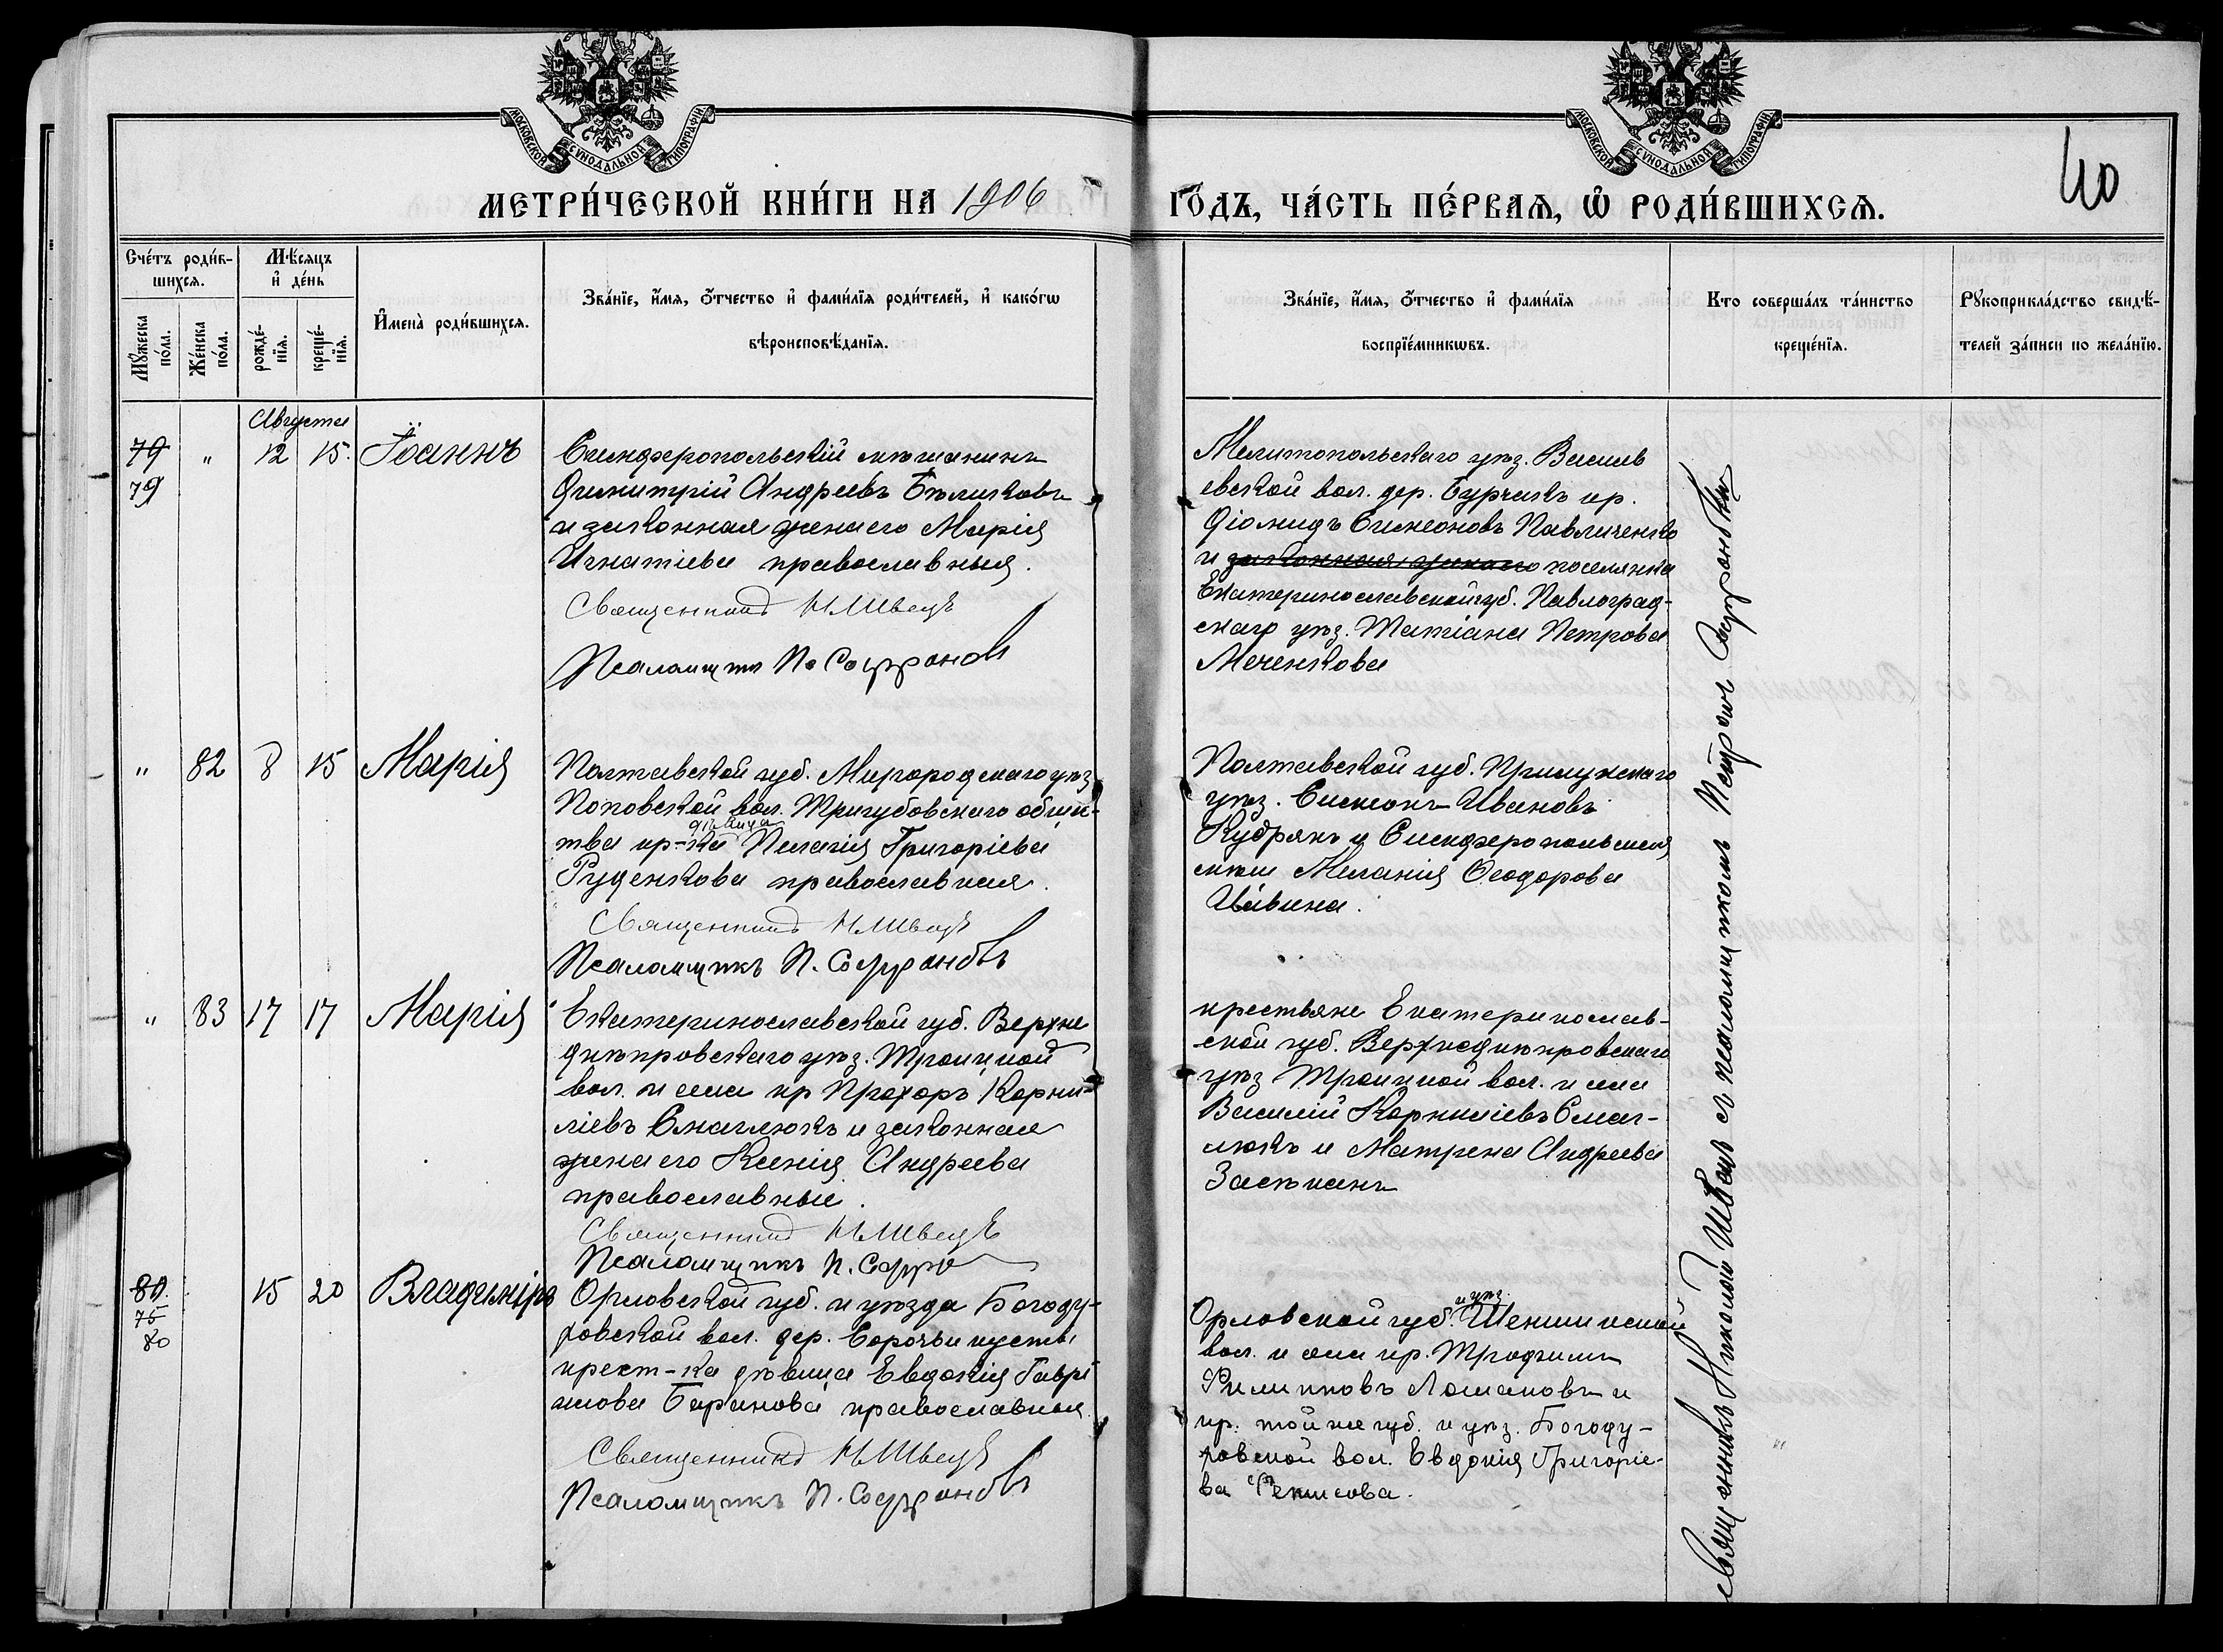 МОСКОВСКОЙ СѴНОДАЛЬНОЙ ТИПОГРАФІИ
МОСКОВСКОЙ СѴНОДАЛЬНОЙ ТИПОГРАФІИ
40
МЕТРИ́ЧЕСКОЙ КНИ́ГИ НА 1906 ГО́ДЪ, ЧА́СТЬ ПЕ́РВАѦ, Ѽ РОДИ́ВШИХСѦ.
Сче́тъ роди́в-
шихсѧ.
Мꙋ́жеска по́ла.
Же́нска по́ла.
Мѣ́сѧцъ
и҆ де́нь
рожде́-
нїѧ.
креще́-
нїѧ.
И҆мена̀ роди́вшихсѧ.
Зва́нїе, и҆́мѧ, ѻ҆́тчество и҆ фами́лїѧ роди́телей, и҆ како́гѡ
вѣроисповѣ́данїѧ.
Зва́нїе, и҆́мѧ, ѻ҆́тчество и҆ фами́лїѧ
воспрїе́мникѡвъ.
Кто соверша́лъ та́инство
креще́нїѧ.
Рꙋкоприкла́дство свидѣ́-
телей за́писи по жела́нїю.
Августа
79 " 12 15. Іоаннъ
79
Симферопольскій мѣщанинъ
Димитрій Андреевъ Бѣликовъ
и законная жена его Марія
Игнатіева православныя.
Священникъ Н Швецъ
Псаломщикъ П. Софроновъ
Мелитопольскаго уѣз. Василь
евской вол. дер. Бурчакъ кр.
Діомидъ Симеоновъ Павличенко
и законная жена его поселянка
Екатеринославской губ. Павлоград-
скаго уѣз. Татіана Петрова
Меченкова
" 82 8 15 Марія
Полтавской губ. Миргородскаго уѣз
Поповской вол. Тригубовскаго общес-
дѣвица
тва кр-ка Пелагія Григоріева
Руденкова православная.
Священникъ Н Швецъ
Псаломщикъ П. Софроновъ
Полтавской губ. Прилукскаго
уѣз. Симеонъ Ивановъ
Кудрякъ и Симферопольская
мѣщ Меланія Ѳеодорова
Ивина.
" 83 17 17 Марія
Екатеринославской губ. Верхне
днѣпровскаго уѣз. Троицкой
вол. и села кр Прохоръ Корни-
ліевъ Смаглюкъ и законная
жена его Ксенія Андреева
православные.
Священникъ Н Швецъ
Псаломщикъ П. Софро
крестьяне Екатеринослав-
ской губ. Верхнеднѣпровскаго
уѣз Троицкой вол. и села
Василій Корниліевъ Смаг-
люкъ и Матрена Андреева
80. 15 20 Владиміръ
75
80
Орловской губ. и уѣзда Богоду-
ховской вол. дер. Сорочьи кусты
крест-ка дѣвица Евдокія Гаврі
илова Баринова православныя
Священникъ Н Швецъ
Псаломщикъ П. Софроновъ
и уѣз.
Орловской губ. Шеншинской
вол. и села кр. Трофимъ
Филипповъ и
кр. той же губ. и уѣз. Богоду-
ховской вол. Евдокія Григоріе-
ва
Священникъ Николай Швецъ съ псаломщикомъ Петромъ Софроновымъ